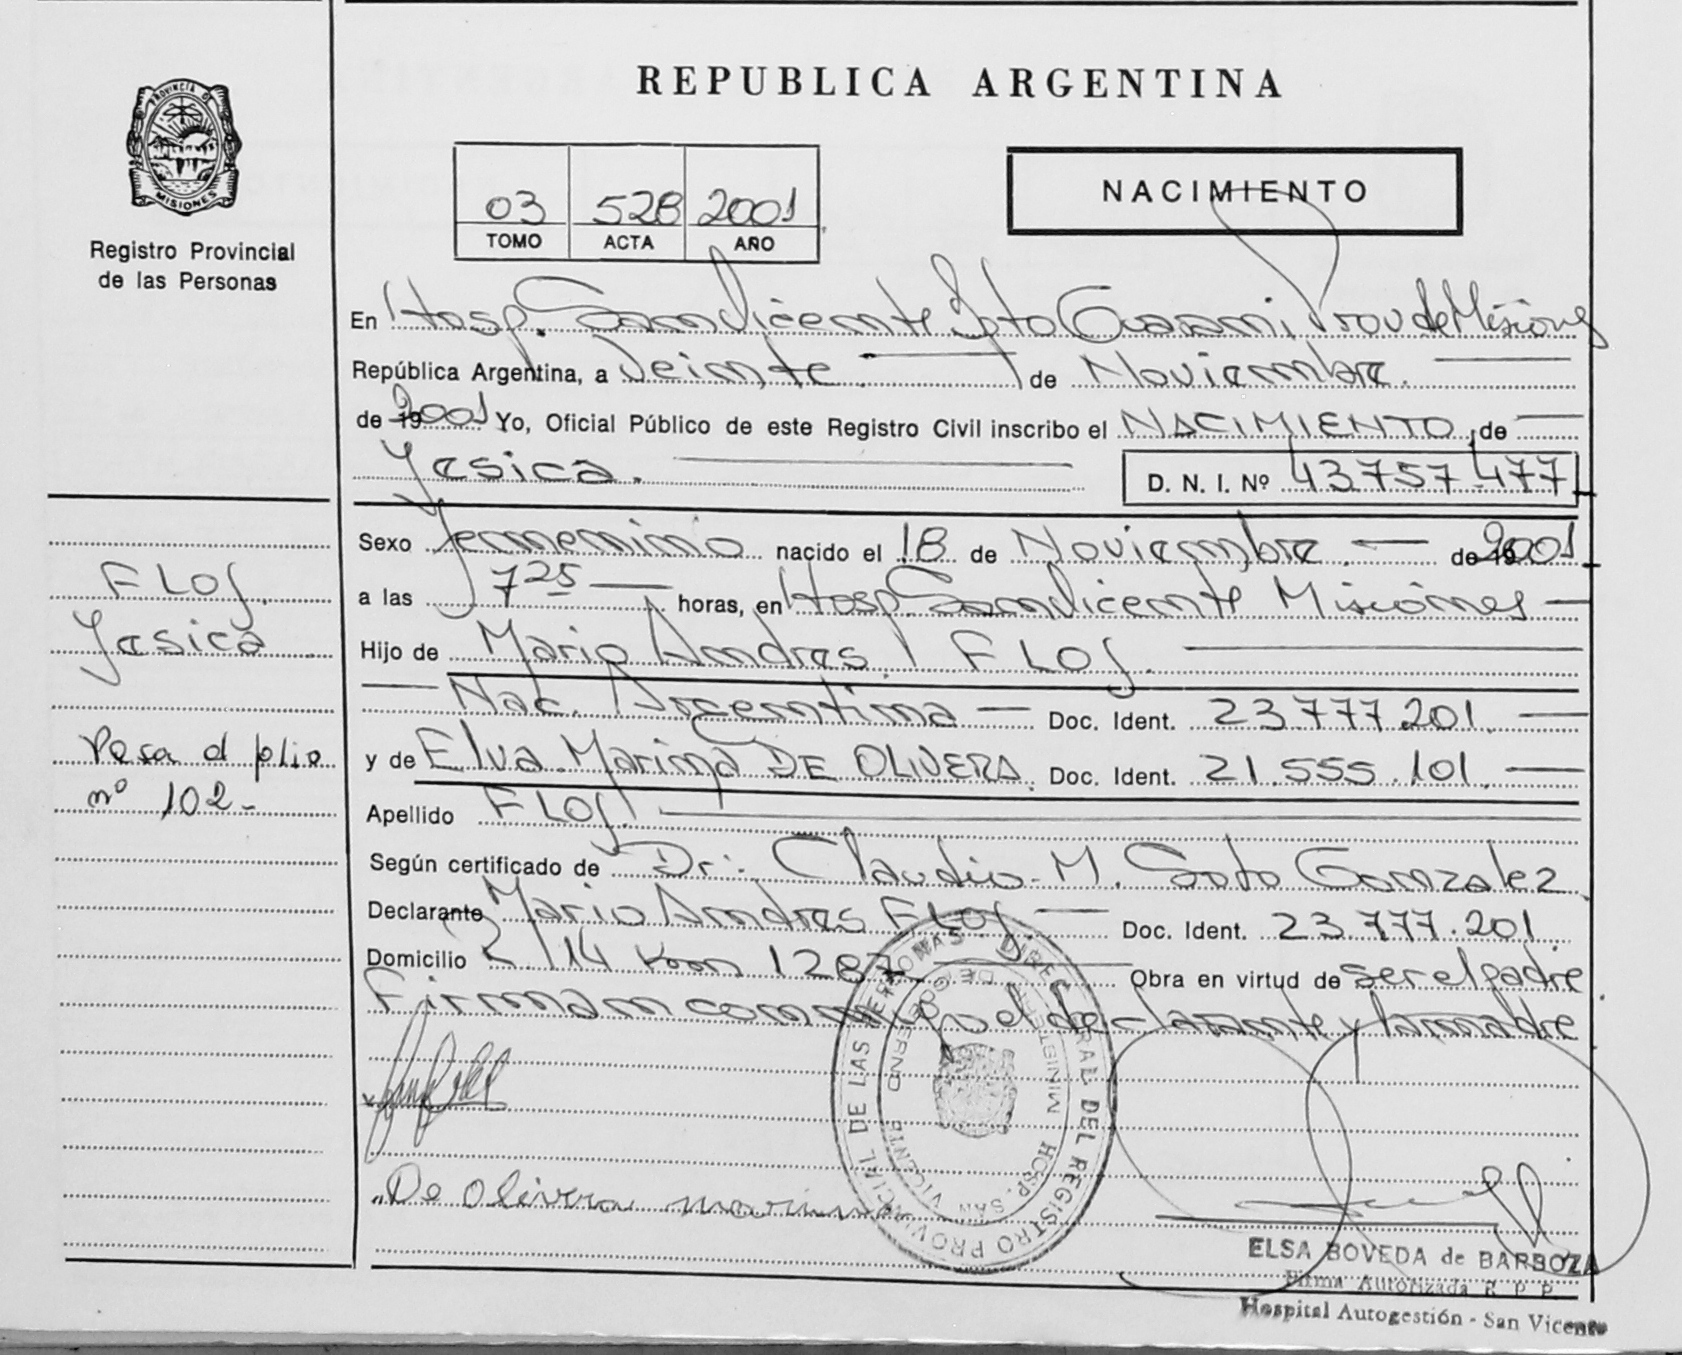 REPUBLICA ARGENTINA
PROVINCIA D
MISIONES
Registro Provincial
de las Personas
03 528 2001
TOMO ACTA AÑO
NACIMIENTO
En Hosp. San Vicente Dpto Guaraní, Prov de Misiones
República Argentina, a Veinte de Noviembre.
de 19 2001 Yo, Oficial Público de este Registro Civil inscribo el NACIMIENTO de
Yesica.
D. N. I. Nº 43757477
Sexo femenino nacido el 18 de Noviembre de 19 2001
a las 7 25 horas, en Hosp San Vicente Misiones
Hijo de Mario Andres FLOJ.
Nac. Argentina Doc. Ident. 23.777.201
y de Elva Marina DE OLIVERA Doc. Ident. 21.555.101
Apellido FLOJ.
Según certificado de Dr: Claudio M. Soto Gonzalez
Declarante Mario Andres FLOJ Doc. Ident. 23.777.201.
Domicilio R/14 Km 1287 Obra en virtud de ser el padre
Firman conmigo el declarante y la madre
FLOJ.
Yesica
Pasa al folio
nº 102-
De Olivera marina
DIREC. GRAL DEL REGISTRO PROVINCIAL DE LAS PERSONAS
MINISTERIO DE GOBIERNO
HOSP. SAN VICENTE
ELSA BOVEDA de BARBOZA
Firma Autorizada R P P
Hospital Autogestión - San Vicente